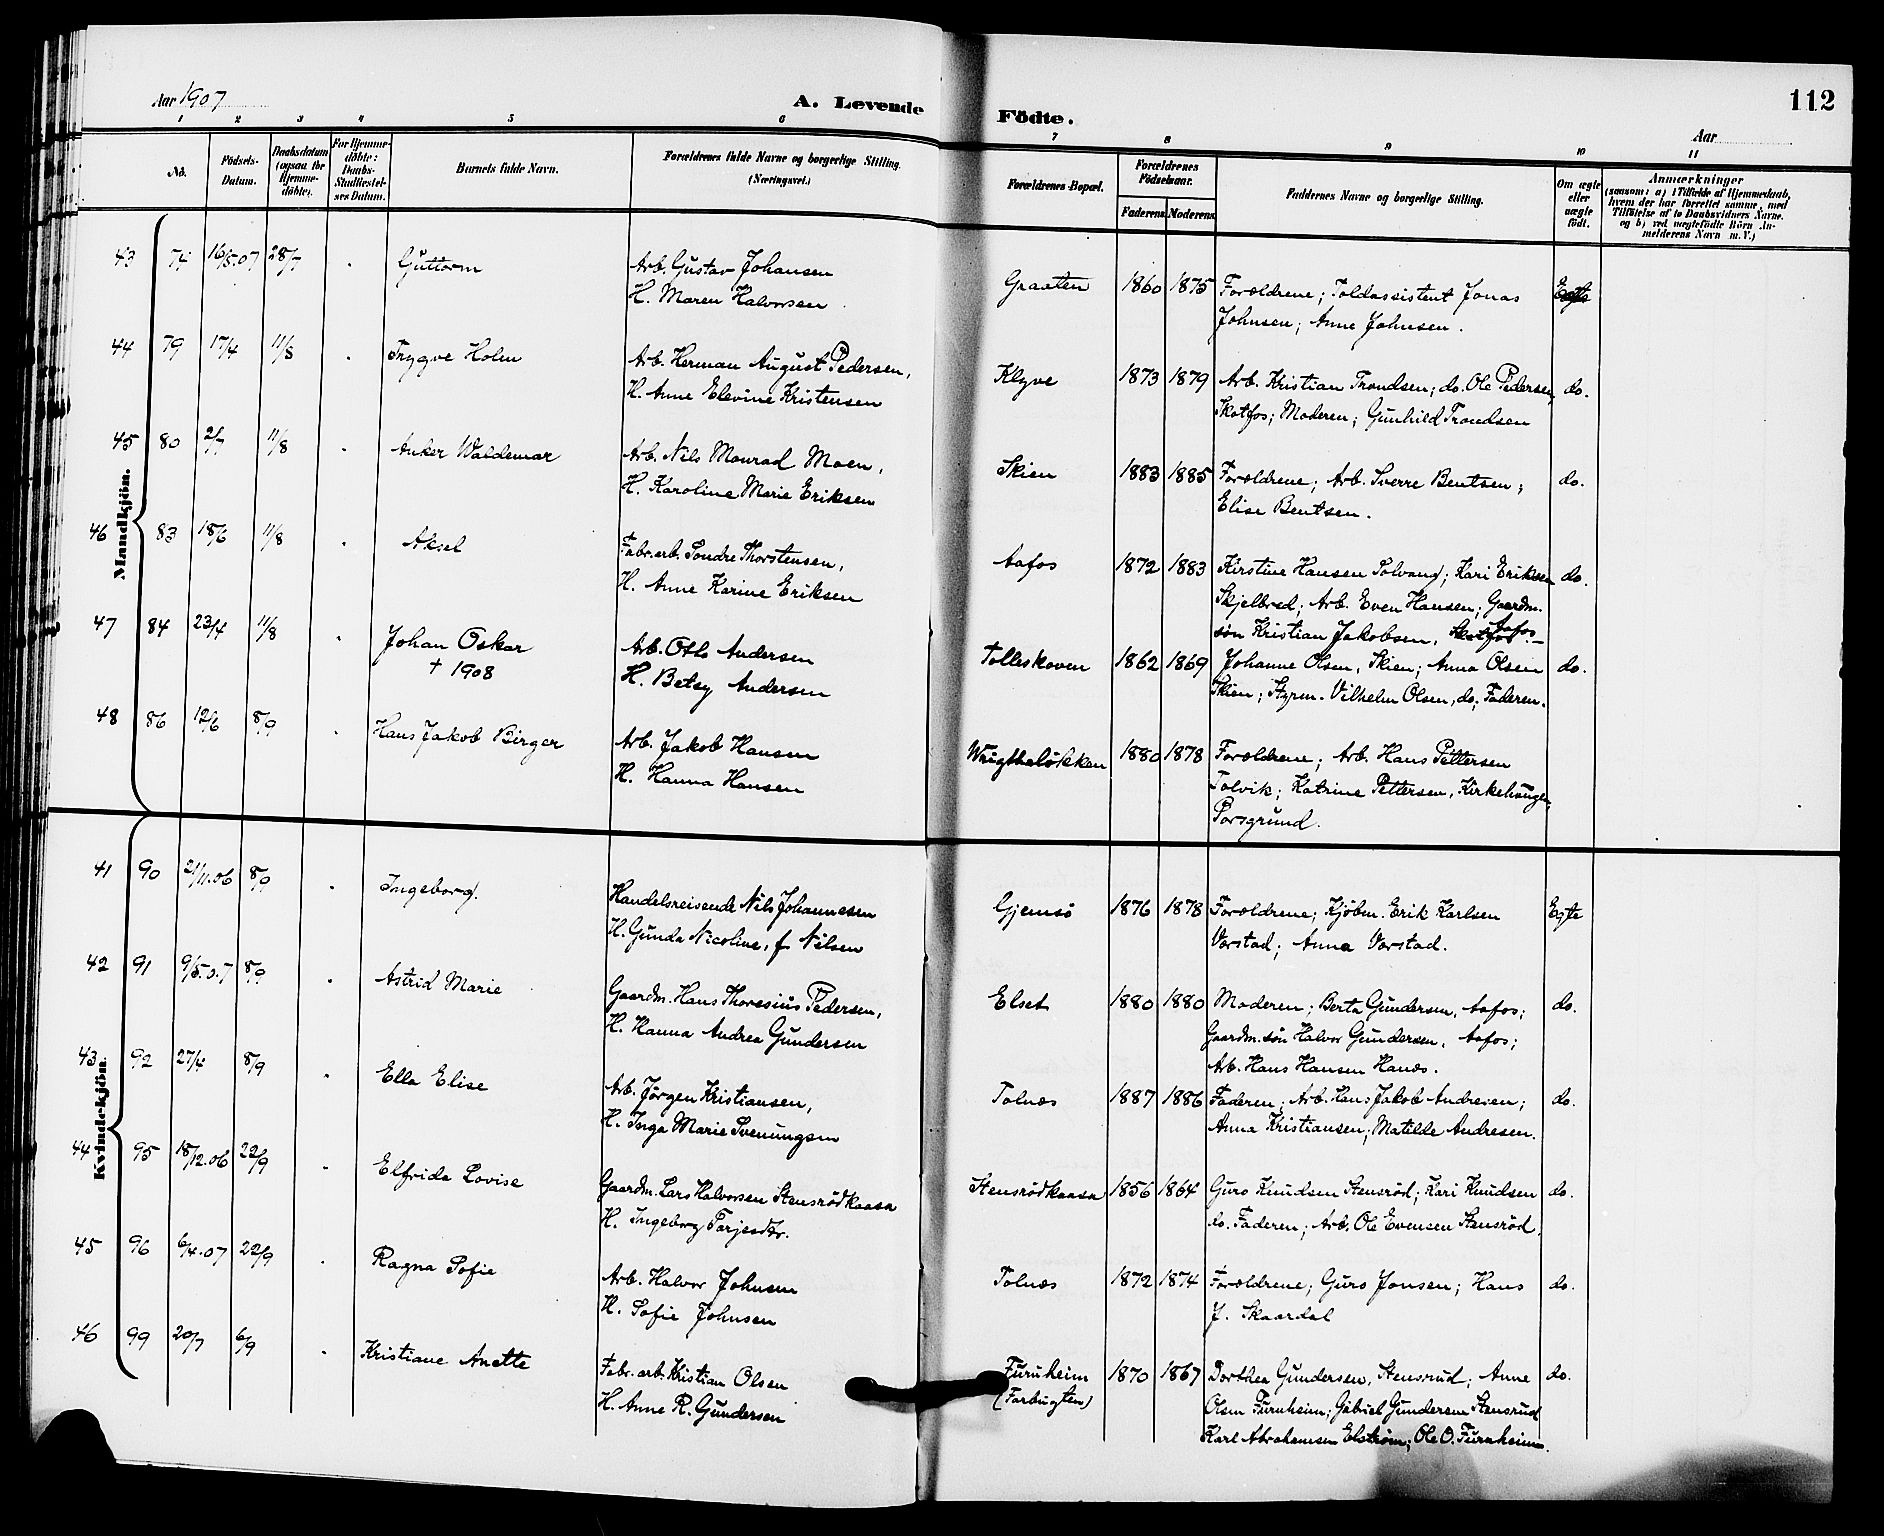 Aar 1907
A. Levende
Födte.
112
Aar
1 2 3 4 5 6 7 8 9 10 11
No.
Födsels-
Datum.
Daabsdatum
(ogsaa for
Hjemme-
döbte).
For Hjemme-
döbte:
Daabs-
Stadfæstel-
ses Datum.
Barnets fulde Navn.
Forældrenes fulde Navne og borgerlige Stilling.
(Næringsvei.)
Forældrenes Bopæl.
Forældrenes
Födselsaar.
Faderens Moderens
Faddernes Navne og borgerlige Stilling.
Om ægte
eller
uægte
født.
Anmærkninger
(saasom: a) i Tilfælde af Hjemmedaab,
hvem der har forrettet samme, med
Tilføielse af to Daabsvidners Navne.
og b) ved uægtefödte Börn An-
melderens Navn m. V.)
Mandkjön.
43 74 16/5.07 28/7 " Guttorm Arb. Gustav Johansen Graaten 1860 1875 Forældrene; Toldassistent Jonas Egte
H. Maren Halvorsen Johnsen; Anne Johnsen.
44 79 17/4 11/8 " Trygve Holm Arb. Herman August Pedersen, Klyve 1873 1879 Arb. Kristian Trondsen; do. Ole Pedersen, do.
H. Anne Elevine Kristensen Skotfos; Moderen; Gunhild Trondsen
45 80 2/7 11/8 " Anker Waldemar Arb. Nils Monrad Moen, Skien 1883 1885 Forældrene; Arb. Sverre Bentsen; do.
H. Karoline Marie Eriksen Elise Bentsen.
46 83 18/6 11/8 " Aksel Fabr.arb. Sondre Thorstensen, Aafos 1872 1883 Kirstine Hansen Solvang; Kari Eriksen do.
H. Anne Karine Eriksen Skjelbred; Arb. Even Hansen; Gaardm.
søn Kristian Jakobsen, Skotfos Aafos.
47 84 23/4 11/8 " Johan Oskar Arb. Otto Andersen Tolleskoven 1862 1869 Johanne Olsen, Skien; Anna Olsen do.
† 1908 H. Betsy Andersen Skien; Styrm. Vilhelm Olsen, do; Faderen.
48 86 12/6 8/9 " Hans Jakob Birger Arb. Jakob Hansen Wrigthsløkken 1880 1878 Forældrene; Arb. Hans Pettersen
H. Hanna Hansen Tolvik; Katrine Pettersen, Kirkehaugen,
Porsgrund.
Kvindekjön.
41 90 21/11.06 8/9 " Ingeborg. Handelsreisende Nils Johannesen Gjemsö 1876 1878 Forældrene; Kjöbm. Erik Karlsen Egte
H. Gunda Nicoline, f. Nilsen Varstad; Anna Varstad.
42 91 9/5.07 8/9 " Astrid Marie Gaardm. Hans Thoresius Pedersen, Elset 1880 1880 Moderen; Berta Gundersen, Aafos; do.
H. Hanna Andrea Gundersen Gaardm.søn Halvor Gundersen, Aafos;
Arb. Hans Hansen Hanæs.
43 92 27/4 8/9 " Ella Elise Arb. Jørgen Kristiansen, Tolnæs 1887 1886 Faderen; Arb. Hans Jakob Andresen; do.
H. Inga Marie Svenungsen Anna Kristiansen; Matilde Andresen.
44 95 18/12.06 22/9 " Elfrida Lovise Gaardm. Lars Halvorsen Stensrödkaasa Stensrödkaasa 1856 1864 Guro Knudsen Stensröd; Kari Knudsen do.
H. Ingeborg Tarjesdtr. do. Faderen; Arb. Ole Evensen Stensröd.
45 96 6/4.07 22/9 " Ragna Sofie Arb. Halvor Johnsen Tolnæs 1872 1874 Forældrene; Guro Jonsen; Hans do.
H. Sofie Johnsen J. Skaardal
46 99 20/7 6/9 " Kristiane Anette Fabr.arb. Kristian Olsen Furuheim 1870 1867 Dorthea Gundersen, Stensrud; Anne do.
H. Anne R. Gundersen (Farbugten) Olsen Furuheim; Gabriel Gundersen Stensrud
Karl Abrahamsen Elstrøm; Ole O. Furuheim.